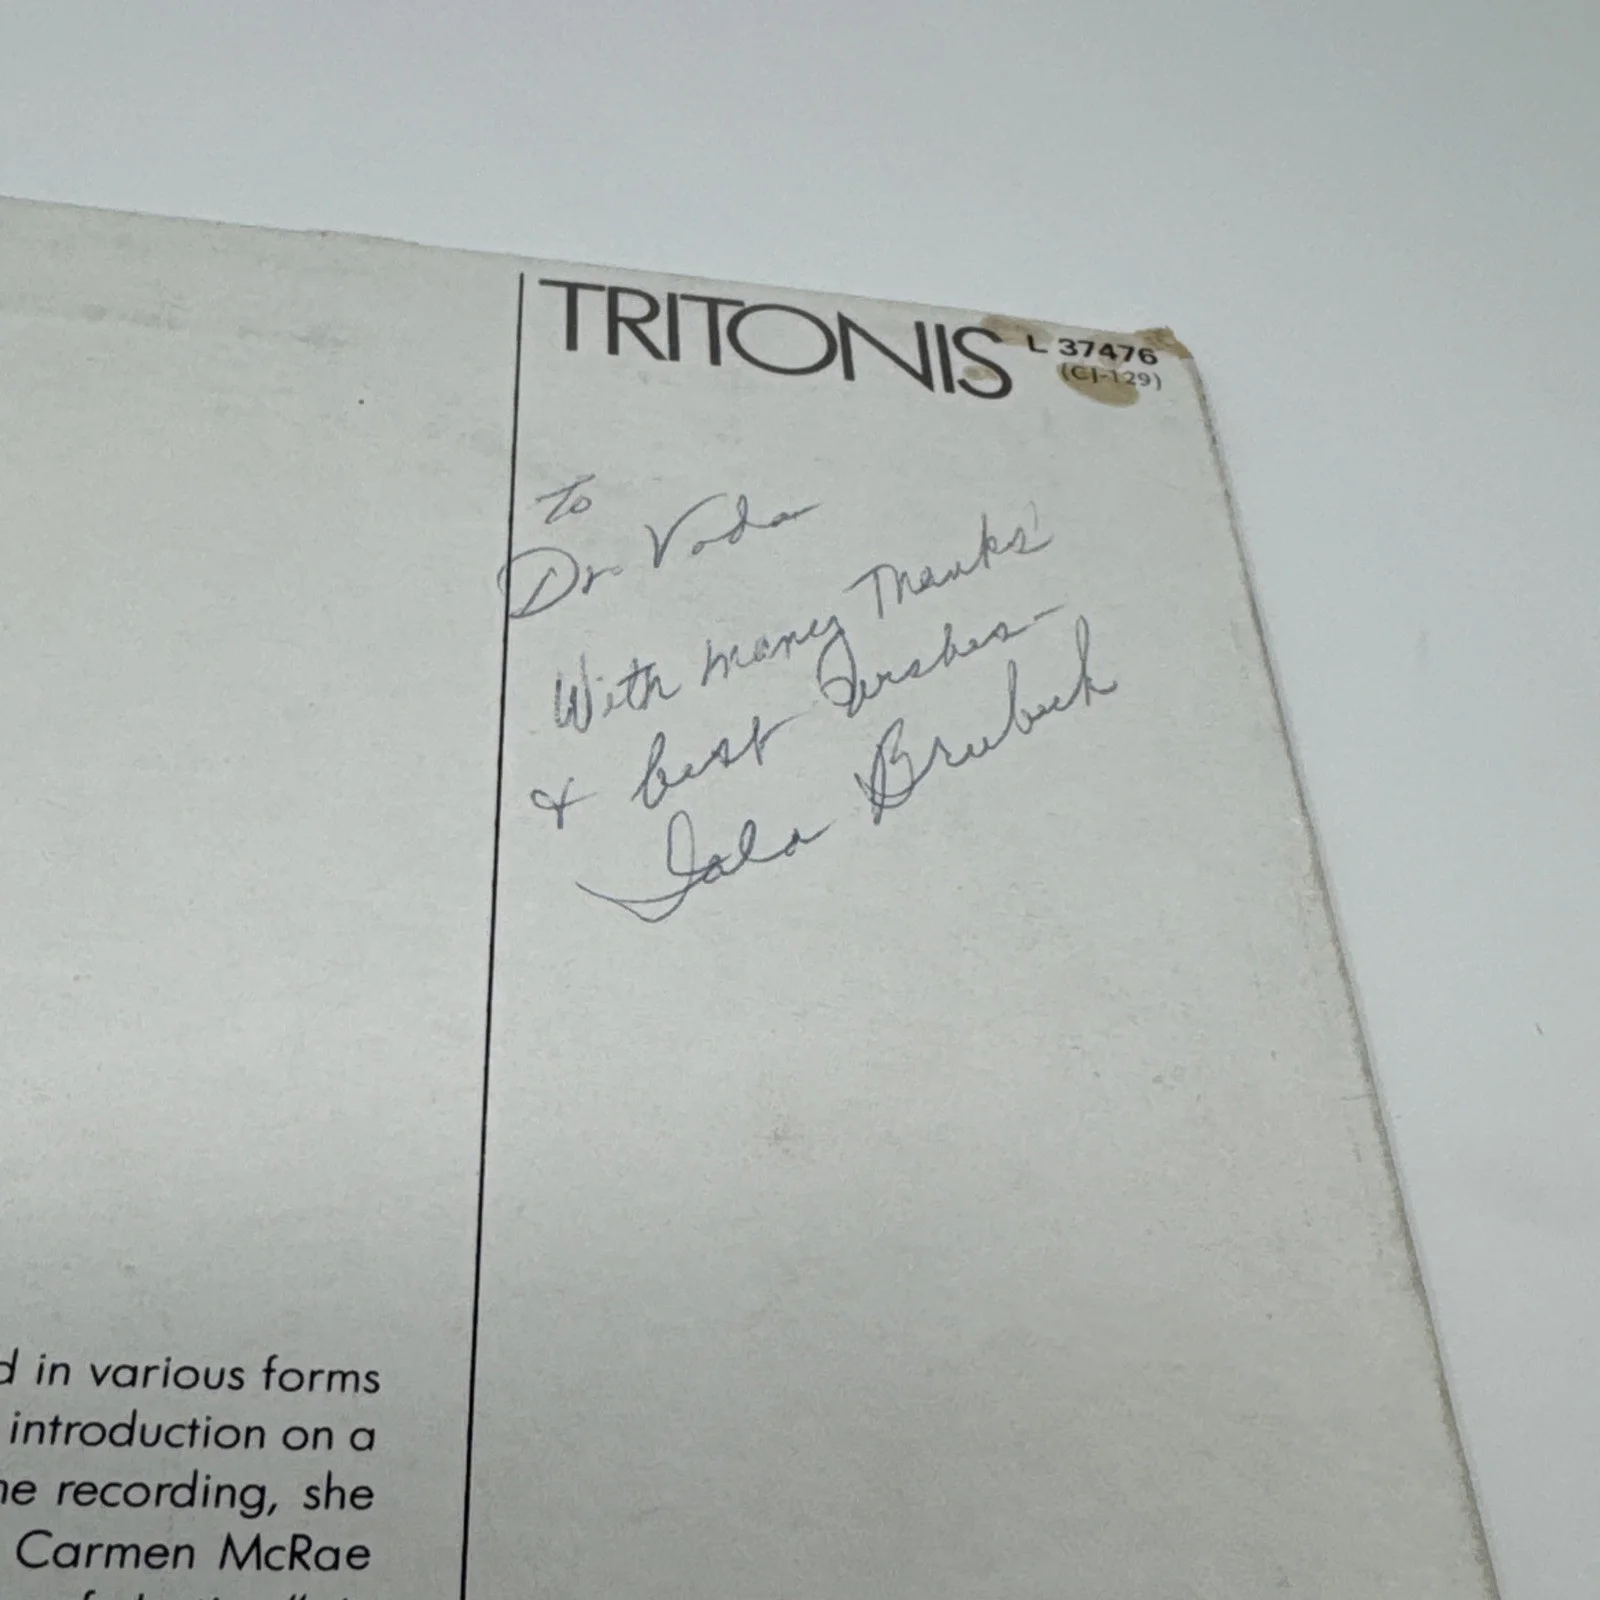 TRITONIS
L 37476
(CJ-129)
To
Dr. Voda
With many Thanks
& best wishes -
Iola Brubeck
d in various forms
introduction on a
he recording, she
Carmen McRae